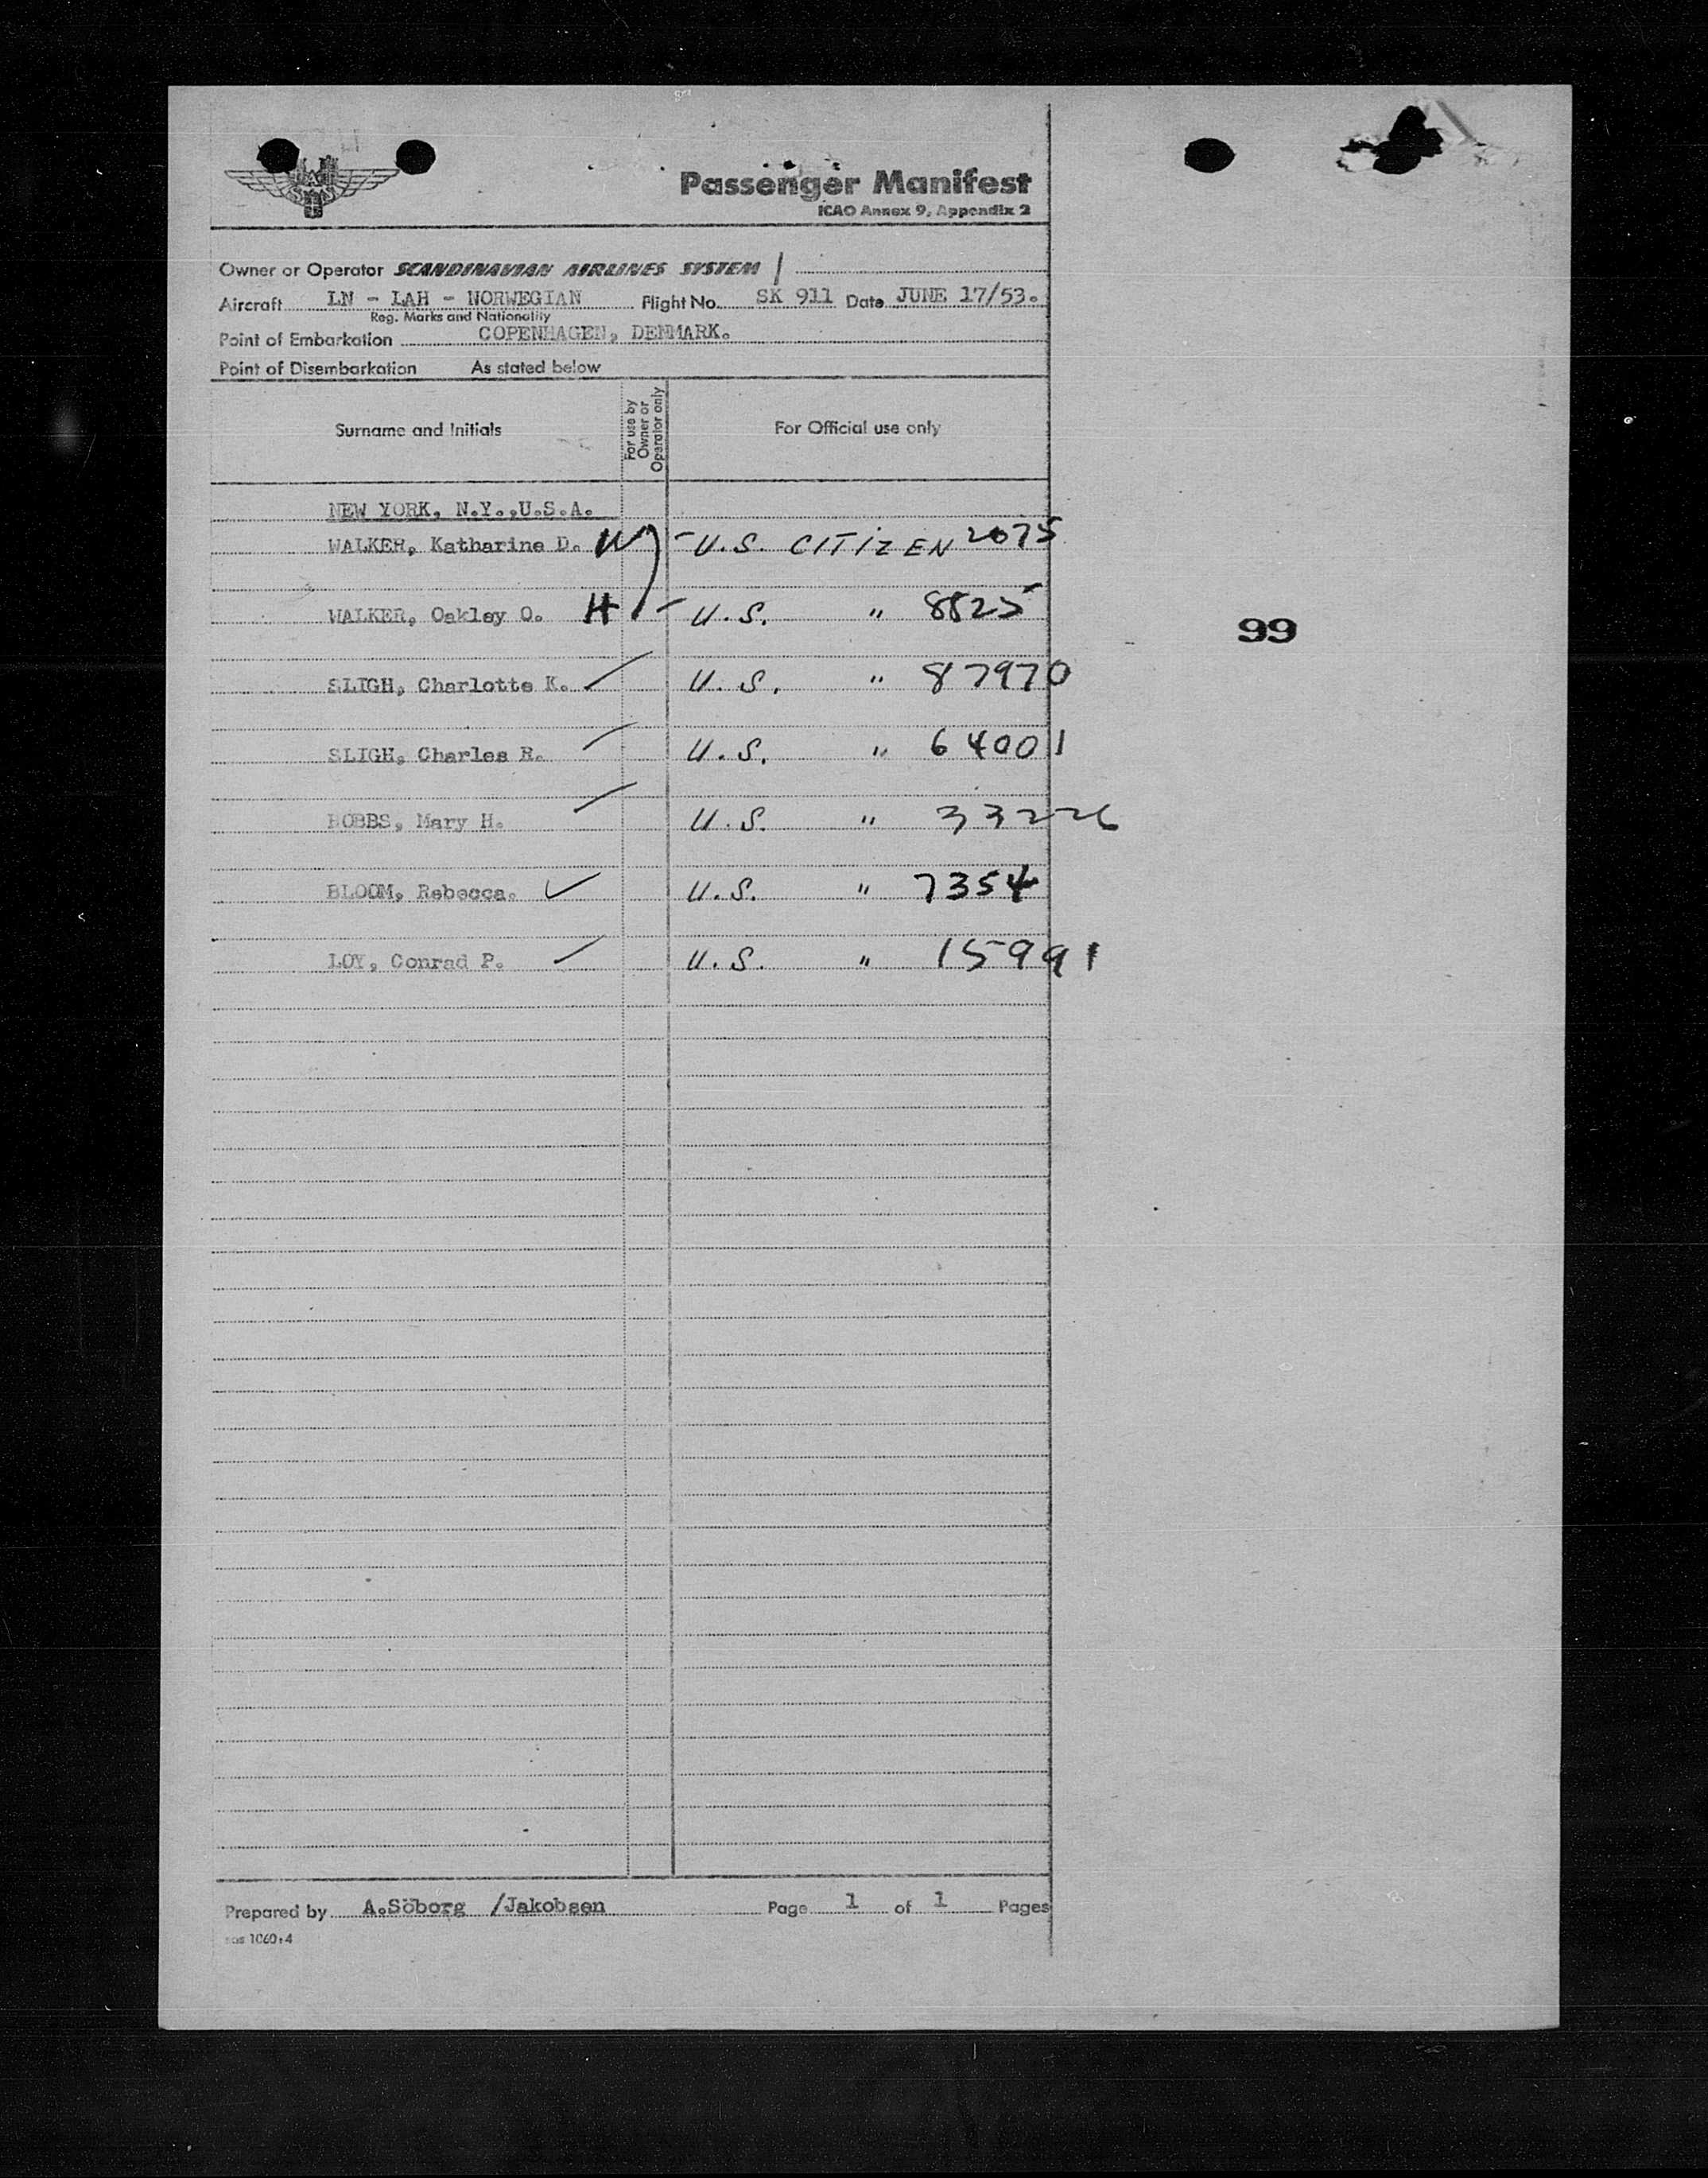 Passenger Manifest
ICAO Annex 9, Appendix 2
Owner or Operator SCANDINAVIAN AIRLINES SYSTEM /
Aircraft LN - LAH - NORWEGIAN Flight No. SK 911 Date JUNE 17/53.
Reg. Marks and Nationality
Point of Embarkation COPENHAGEN, DENMARK.
Point of Disembarkation As stated below
Surname and Initials For use by Owner or Operator only For Official use only
NEW YORK, N.Y.,U.S.A.
WALKER, Katharine D. W - U.S. CITIZEN 2075
WALKER, Oakley O. H - U.S. " 8825
99
SLIGH, Charlotte K. U.S. " 87970
SLIGH, Charles R. U.S. " 64001
HOBBS, Mary H. U.S. " 33226
BLOOM, Rebecca. U.S. " 7354
LOY, Conrad P. U.S. " 15991
Prepared by A.Söborg /Jakobsen Page 1 of 1 Pages
sas 1060:4